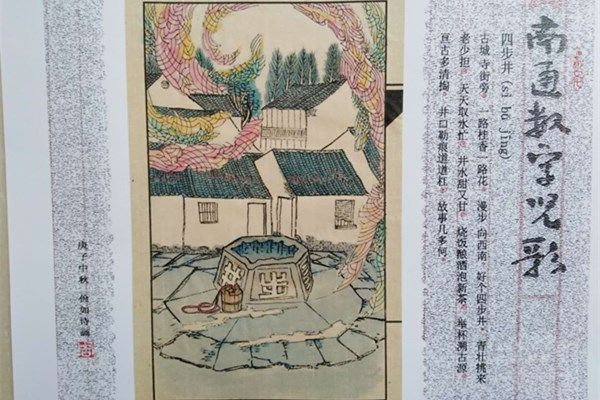 南通数字儿歌
四步井 (sì bù jǐng)
古城 寺街旁。 一路桂香一路花。 漫步 向西南, 好个四步井。 青壮挑来
老少担。 天天取水忙。 井水甜又甘。 烧饭酿酒泡新茶。 举杯溯古源。
亘古多清掏。 井口勒痕道道杠。 故事几多何。
庚子中秋